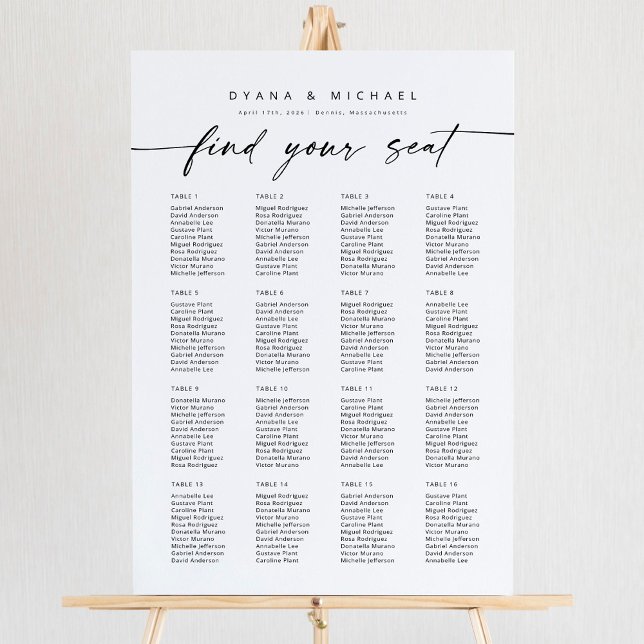 DYANA & MICHAEL
April 17th, 2026 | Dennis, Massachusetts
find your seat
TABLE 1
Gabriel Anderson
David Anderson
Annabelle Lee
Gustave Plant
Caroline Plant
Miguel Rodriguez
Rosa Rodriguez
Donatella Murano
Victor Murano
Michelle Jefferson
TABLE 2
Miguel Rodriguez
Rosa Rodriguez
Donatella Murano
Victor Murano
Michelle Jefferson
Gabriel Anderson
David Anderson
Annabelle Lee
Gustave Plant
Caroline Plant
TABLE 3
Michelle Jefferson
Gabriel Anderson
David Anderson
Annabelle Lee
Gustave Plant
Caroline Plant
Miguel Rodriguez
Rosa Rodriguez
Donatella Murano
Victor Murano
TABLE 4
Gustave Plant
Caroline Plant
Miguel Rodriguez
Rosa Rodriguez
Donatella Murano
Victor Murano
Michelle Jefferson
Gabriel Anderson
David Anderson
Annabelle Lee
TABLE 5
Gustave Plant
Caroline Plant
Miguel Rodriguez
Rosa Rodriguez
Donatella Murano
Victor Murano
Michelle Jefferson
Gabriel Anderson
David Anderson
Annabelle Lee
TABLE 6
Gabriel Anderson
David Anderson
Annabelle Lee
Gustave Plant
Caroline Plant
Miguel Rodriguez
Rosa Rodriguez
Donatella Murano
Victor Murano
Michelle Jefferson
TABLE 7
Miguel Rodriguez
Rosa Rodriguez
Donatella Murano
Victor Murano
Michelle Jefferson
Gabriel Anderson
David Anderson
Annabelle Lee
Gustave Plant
Caroline Plant
TABLE 8
Annabelle Lee
Gustave Plant
Caroline Plant
Miguel Rodriguez
Rosa Rodriguez
Donatella Murano
Victor Murano
Michelle Jefferson
Gabriel Anderson
David Anderson
TABLE 9
Donatella Murano
Victor Murano
Michelle Jefferson
Gabriel Anderson
David Anderson
Annabelle Lee
Gustave Plant
Caroline Plant
Miguel Rodriguez
Rosa Rodriguez
TABLE 10
Michelle Jefferson
Gabriel Anderson
David Anderson
Annabelle Lee
Gustave Plant
Caroline Plant
Miguel Rodriguez
Rosa Rodriguez
Donatella Murano
Victor Murano
TABLE 11
Gustave Plant
Caroline Plant
Miguel Rodriguez
Rosa Rodriguez
Donatella Murano
Victor Murano
Michelle Jefferson
Gabriel Anderson
David Anderson
Annabelle Lee
TABLE 12
Michelle Jefferson
Gabriel Anderson
David Anderson
Annabelle Lee
Gustave Plant
Caroline Plant
Miguel Rodriguez
Rosa Rodriguez
Donatella Murano
Victor Murano
TABLE 13
Annabelle Lee
Gustave Plant
Caroline Plant
Miguel Rodriguez
Rosa Rodriguez
Donatella Murano
Victor Murano
Michelle Jefferson
Gabriel Anderson
David Anderson
TABLE 14
Miguel Rodriguez
Rosa Rodriguez
Donatella Murano
Victor Murano
Michelle Jefferson
Gabriel Anderson
David Anderson
Annabelle Lee
Gustave Plant
Caroline Plant
TABLE 15
Gabriel Anderson
David Anderson
Annabelle Lee
Gustave Plant
Caroline Plant
Miguel Rodriguez
Rosa Rodriguez
Donatella Murano
Victor Murano
Michelle Jefferson
TABLE 16
Gustave Plant
Caroline Plant
Miguel Rodriguez
Rosa Rodriguez
Donatella Murano
Victor Murano
Michelle Jefferson
Gabriel Anderson
David Anderson
Annabelle Lee